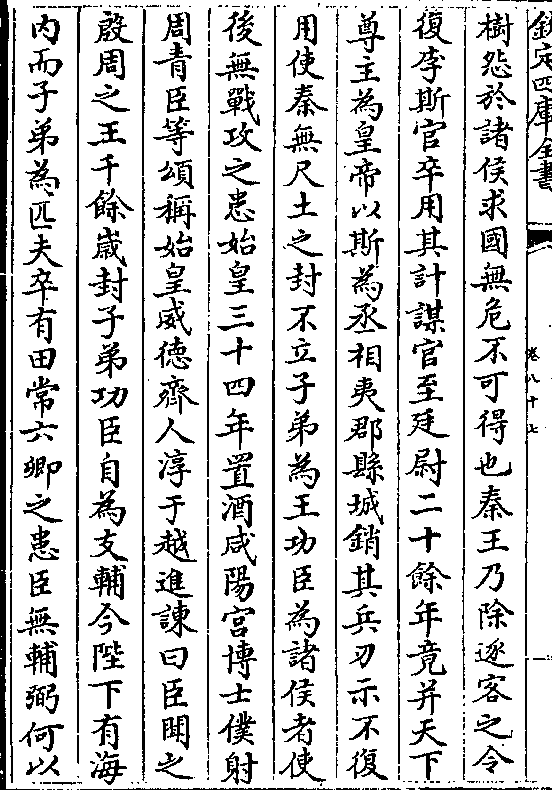 欽定四庫全書
卷八十七
樹怨於諸侯求國無危不可得也秦王乃除逐客之令
復李斯官卒用其計謀官至廷尉二十餘年竟并天下
尊主為皇帝以斯為丞相夷郡縣城銷其兵刃示不復
用使秦無尺土之封不立子弟為王功臣為諸侯者使
後無戰攻之患始皇三十四年置酒咸陽宮博士僕射
周青臣等頌稱始皇威德齊人淳于越進諫曰臣聞之
殷周之王千餘嵗封子弟功臣自為支輔今陛下有海
内而子弟為匹夫卒有田常六卿之患臣無輔弼何以